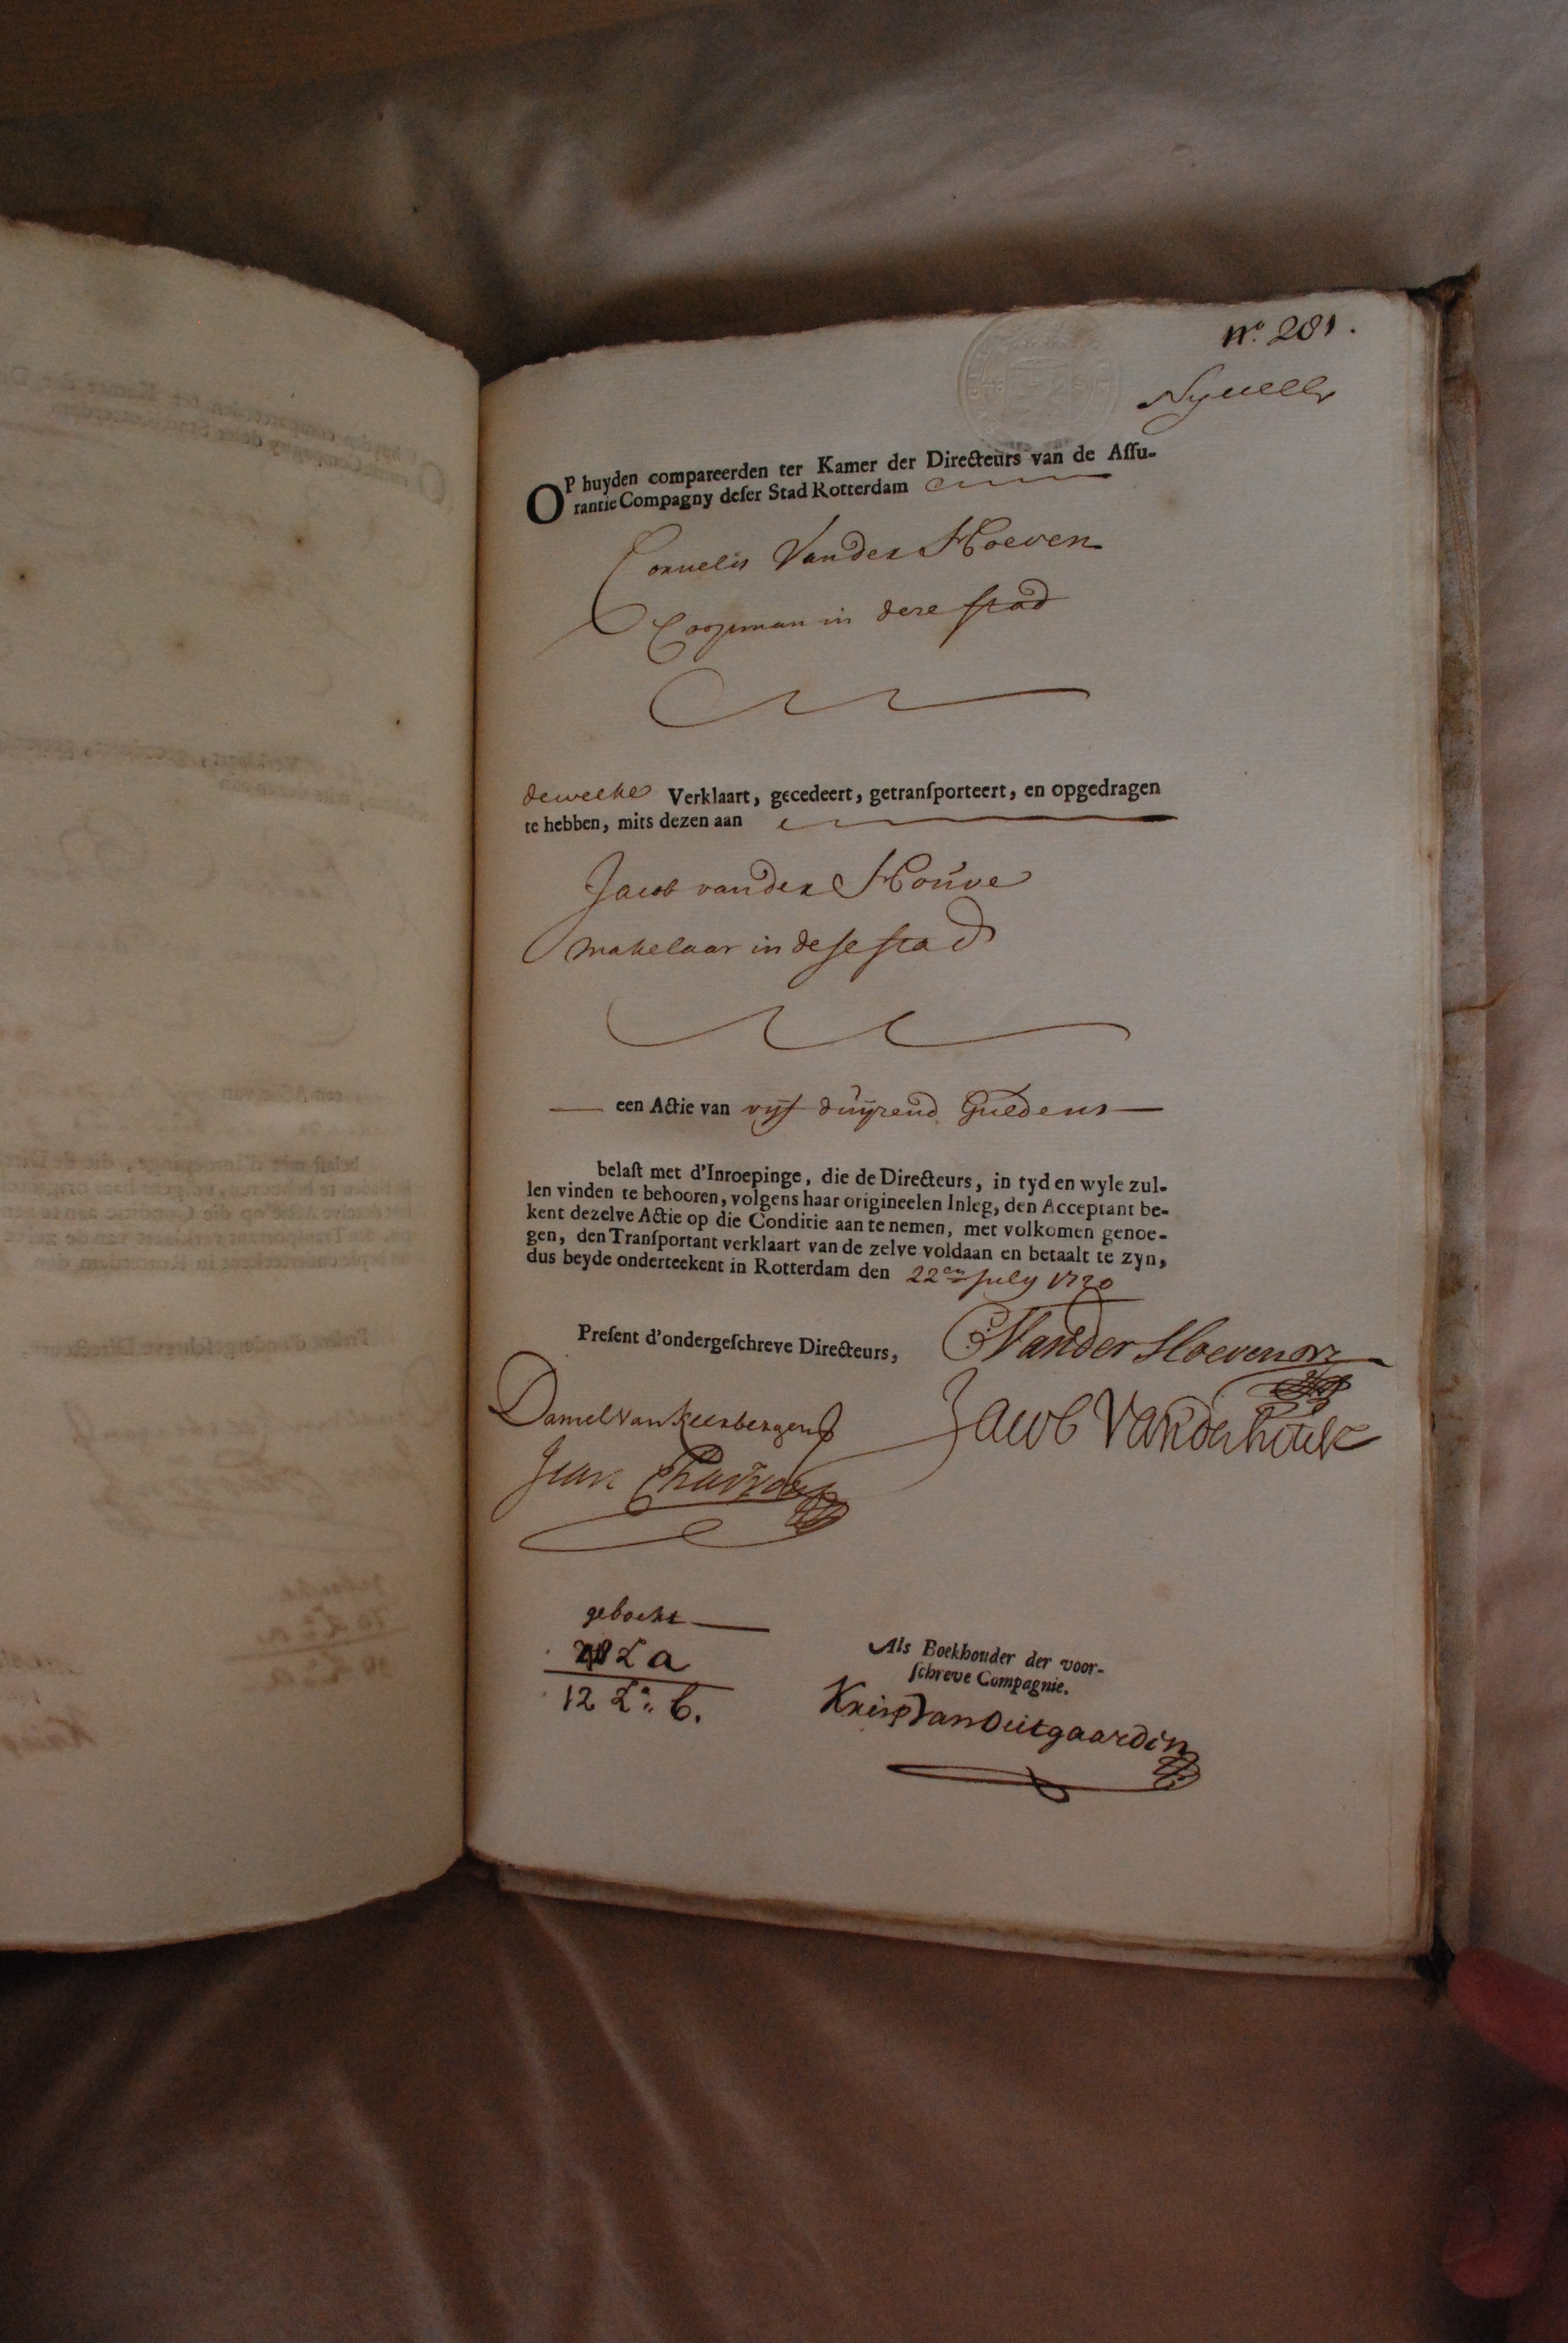 nº. 281.
OP huyden compareerden ter Kamer der Directeurs van de Aſſu-
rantie Compagny deſer Stad Rotterdam
Cornelis Vander Hoeven
Coopman in dese stad
dewelke Verklaart, gecedeert, getranſporteert, en opgedragen
te hebben, mits dezen aan
Jacob vander Houve
makelaar in deſe ſtad
een Actie van vyf duyzend Guldens
belaſt met d'Inroepinge, die de Directeurs, in tyd en wyle zul-
len vinden te behooren, volgens haar origineelen Inleg, den Acceptant be-
kent dezelve Actie op die Conditie aan te nemen, met volkomen genoe-
gen, den Tranſportant verklaart van de zelve voldaan en betaalt te zyn,
dus beyde onderteekent in Rotterdam den 22en July 1720
Preſent d'ondergeſchreve Directeurs,
C Vander Hoeven
Daniel van Keersbergen
Jacob Vanderhouve
Jean
geboekt
La a
12 La: b.
Als Boekhouder der voor-
ſchreve Compagnie.